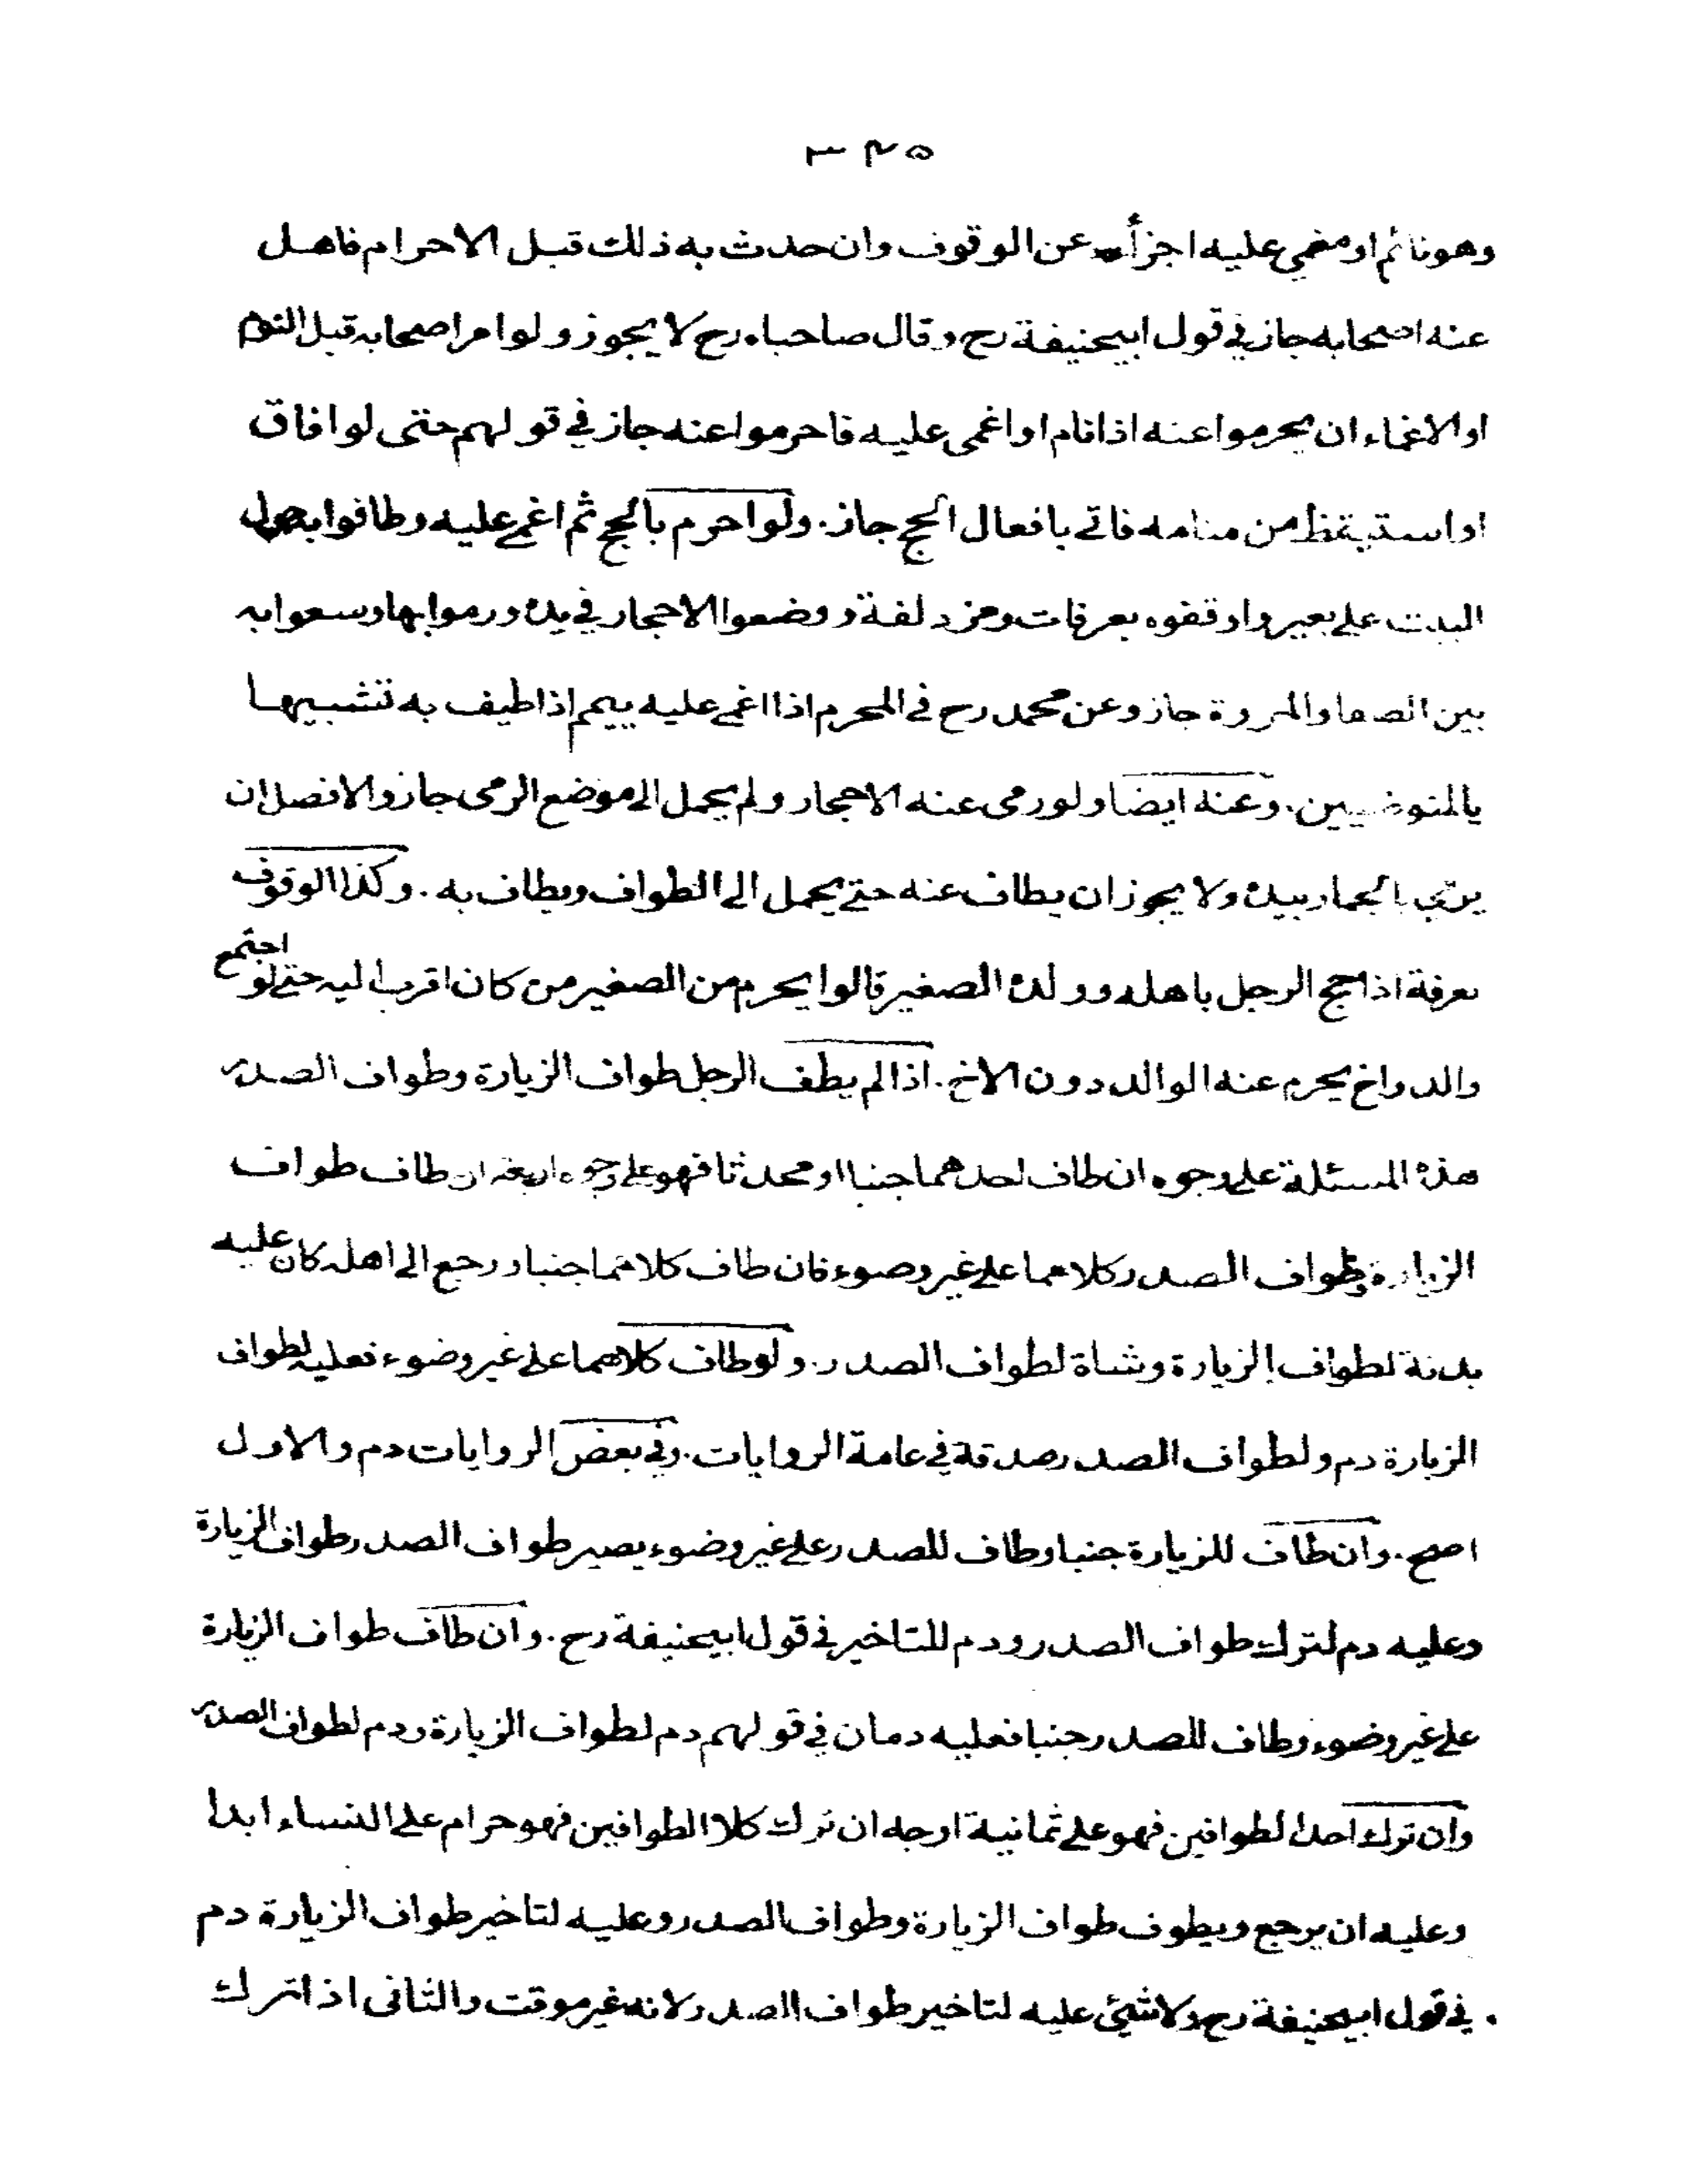 ٣٤٥
وهو نائم او مغمى عليه اجزأه عن الوقوف وان حدث به ذلك قبل الاحرام فاهل
عنه اصحابه جاز في قول ابيحنيفة رح وقال صاحباه رح لا يجوز ولو امر اصحابه قبل النوم
او الاغماء ان يحرموا عنه اذا نام او اغمى عليه فاحرموا عنه جاز في قولهم حتى لو افاق
او استيقظ من منامه فاتى بافعال الحج جاز. ولو احرم بالحج ثم اغمى عليه وطافوا به حول
البيت على بعير واوقفوه بعرفات ومزدلفة ووضعوا الاحجار في يده ورموا بها وسعوا به
بين الصفا والمروة جاز وعن محمد رح في المحرم اذا اغمى عليه ييمم اذا طيف به تشبيها
بالمتوضيين. وعنه ايضا ولو رمى عنه الاحجار ولم يحمل الى موضع الرمى جاز والافضل ان
يرمى بالجمار بيده ولا يجوز ان يطاف عنه حتى يحمل الى الطواف ويطاف به. وكذا الوقوف
بعرفة اذا حج الرجل باهله وولده الصغير قالوا يحرم من الصغير من كان اقرب اليه حتى لو اجتمع
والد واخ يحرم عنه الوالد دون الاخ. اذا لم يطف الرجل طواف الزيارة وطواف الصدر
هذه المسئلة على وجوه ان طاف احدهما جنبا او محدثا فهو على وجوه اربعة ان طاف طواف
الزيارة وطواف الصدر كلاهما على غير وضوء فان طاف كلاهما جنبا ورجع الى اهله كان عليه
بدنة لطواف الزيارة وشاة لطواف الصدر. ولو طاف كلاهما على غير وضوء فعليه لطواف
الزيارة دم ولطواف الصدر صدقة في عامة الروايات. وفي بعض الروايات دم والاول
اصح. وان طاف للزيارة جنبا وطاف للصدر على غير وضوء يصير طواف الصدر طواف الزيارة
وعليه دم لترك طواف الصدر ودم للتاخير في قول ابيحنيفة رح. وان طاف طواف الزيارة
على غير وضوء وطاف للصدر جنبا فعليه دمان في قولهم دم لطواف الزيارة ودم لطواف الصدر
وان ترك احد الطوافين فهو على ثمانية اوجه ان ترك كلا الطوافين فهو حرام على النساء ابدا
وعليه ان يرجع ويطوف طواف الزيارة وطواف الصدر وعليه لتاخير طواف الزيارة دم
في قول ابيحنيفة رح ولا شيئ عليه لتاخير طواف الصدر لانه غير موقت والثانى اذا ترك